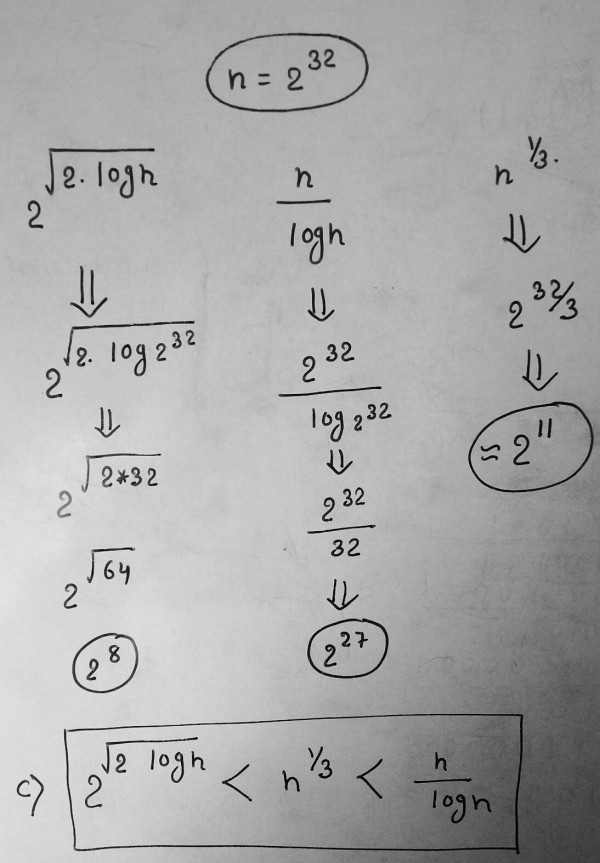 n = 2^32
2^√(2. logn)
⇓
2^√(2. log 2^32)
⇓
2^√(2*32)
2^√64
2^8
n / logn
⇓
2^32 / log 2^32
⇓
2^32 / 32
⇓
2^27
n^1/3.
⇓
2^32/3
⇓
≈ 2^11
c) 2^√(2 logn) < n^1/3 < n / logn